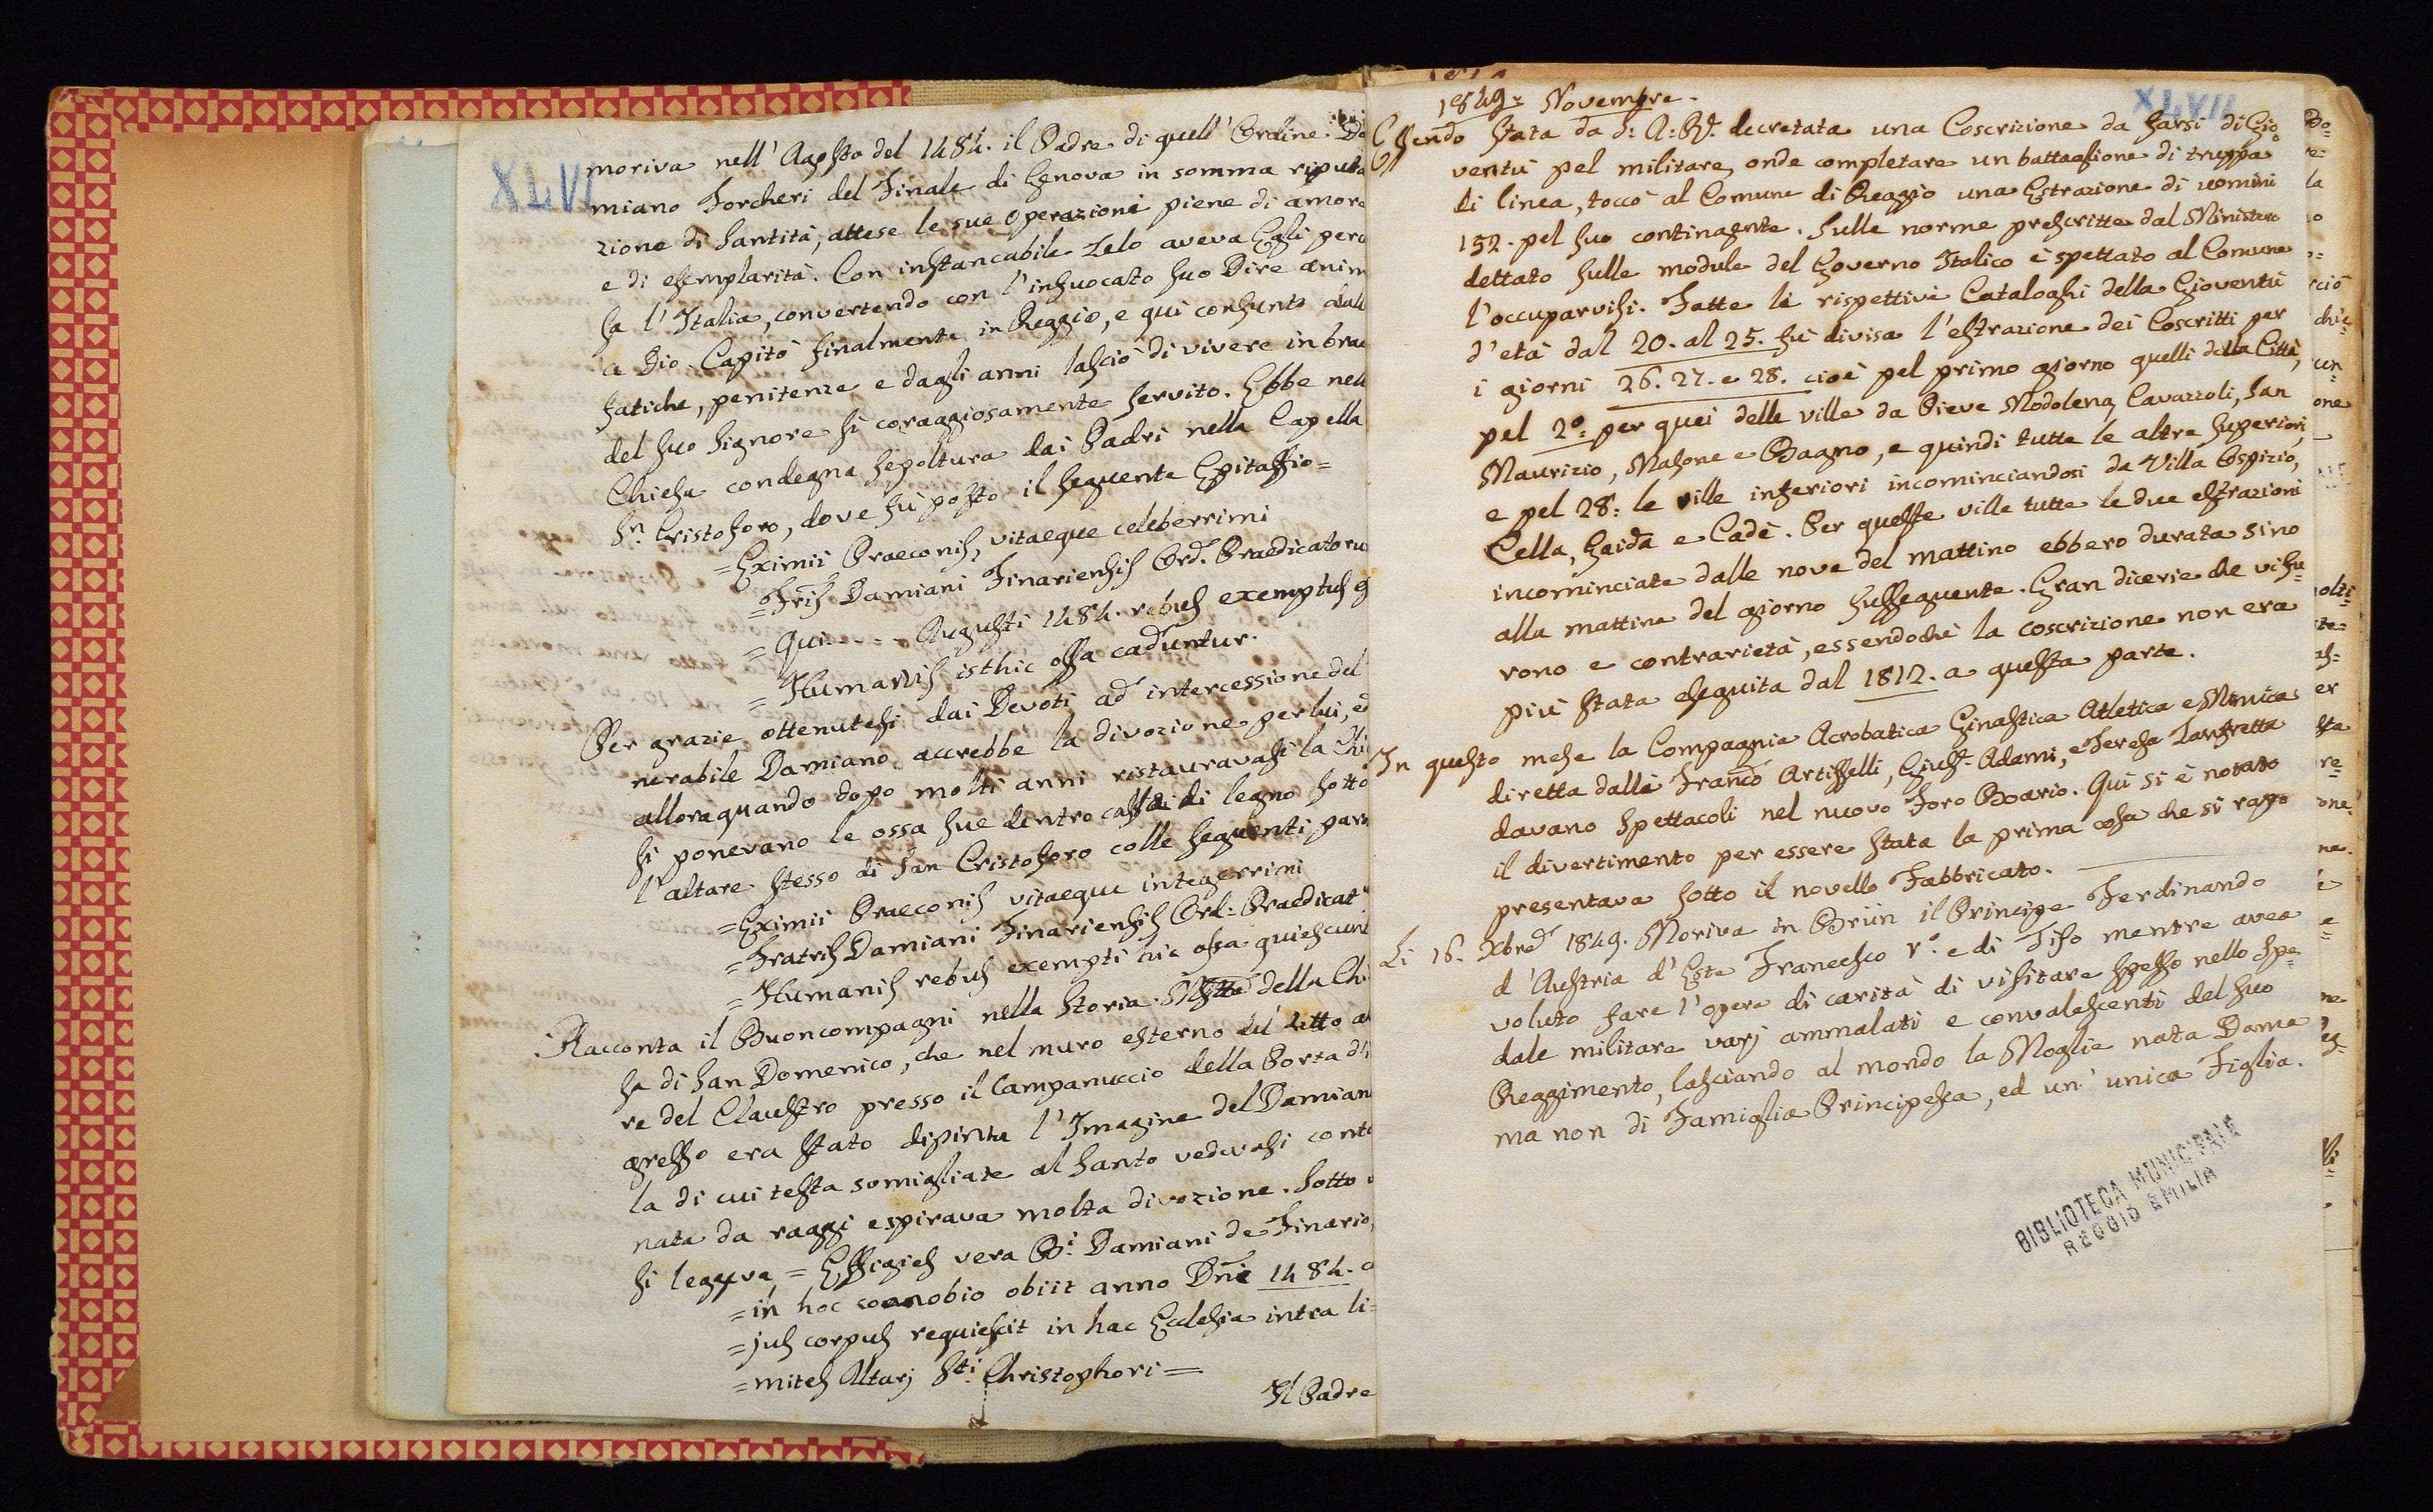 XLVI
moriva nell' Agosto del 1484. il Padre di quell' Ordine Da
miano Forcheri del Finale di Genova in somma riputa
zione di Santità, attese le sue operazioni piene di amore
e di esemplarità. Con instancabile zelo aveva Egli perc
sa l'Italia, convertendo con l'infuocato suo Dire anim
a Dio. Capitò finalmente in Reggio, e qui consunto dall
fatiche, penitenze e dagli anni lasciò di vivere in brac
del suo Signore sì coraggiosamente servito. Ebbe nell
Chiesa condegna sepoltura dai Padri nella Capella
Sn. Cristoforo, dove fù posto il seguente Epitaffio=
=Eximii Praeconis, vitaeque celeberrimi
=Fris Damiani Finariensis Ord. Praedicatoru
=Qui - - - Augusti 1484. rebus exemptus
=Humanis isthic ossa caduntur.
Per grazie ottenutesi dai Devoti ad intercessione del
nerabile Damiano accrebbe la divozione per lui, ed
alloraquando dopo molti anni ristauravasi la Chi
si ponevano le ossa sue dentro cassa di legno sotto
l'altare stesso di San Cristoforo colle seguenti paro
=Eximii Praeconis vitaeque integerrimi
=Fratris Damiani Finariensis Ord: Praedicat
=Humanis rebus exempti hic ossa quiescunt
Racconta il Buoncompagni nella Storia della Ch
sa di San Domenico, che nel muro esterno
re del Claustro presso il Campanuccio della Porta d'i
gresso era stato dipinta l'Imagine del Damian
la di cui testa somigliate al Santo vedevasi conto
nata da raggi e spirava molta divozione. Sotto
si leggeva = Effigies vera Bi. Damiani de Finario,
=in hoc coenobio obiit anno Dni 1484. c
=jus corpus requiescit in hac Ecclesia intra li=
=mites Altarj Sti: Christophori =
Il Padre
XLVII
1849= Novembre.
Essendo stata da S: A: R. decretata una Coscrizione da farsi di Gio=
ventù pel militare, onde completare un battaglione di truppa
di linea, toccò al Comune di Reggio una Estrazione di uomini
152. pel suo contingente. Sulle norme prescritte dal Ministero
dettato sulle module del Governo Italico è spettato al Comune
l'occuparvisi. Fatte li rispettivi Cataloghi della Gioventù
d'età dal 20. al 25. fù divisa l'estrazione dei Coscritti per
i giorni 26. 27. e 28. cioè pel primo giorno quelli della Città,
pel 2o: per quei delle ville da Pieve Modolena, Cavazzoli, San
Maurizio, Masone e Bagno, e quindi tutte le altre superiori,
e pel 28: le ville inferiori incominciandosi da Villa Ospizio,
Cella, Gaida e Cadè. Per queste ville tutte le due estrazioni
incominciate dalle nove del mattino ebbero durata sino
alla mattina del giorno susseguente. Gran dicerie che vi fu=
rono e contrarietà, essendochè la coscrizione non era
più stata eseguita dal 1812. a questa parte.
In questo mese la Compagnia Acrobatica Ginastica Atletica e Mimica
diretta dalli Franco Artisselli, Gius. Adami, e Teresa Zanfretta
davano Spettacoli nel nuovo Foro Boario. Qui si è notato
il divertimento per essere stata la prima cosa che si rap
presentava sotto il novello Fabbricato.
Li 16. Xbre 1849. Moriva in Brün il Principe Ferdinando
d'Austria d'Este Francesco Vo. e di Tifo mentre avea
voluto fare l'opera di carità di visitare spesso nello Spe=
dale militare varj ammalati e convalescenti del suo
Reggimento, lasciando al mondo la Moglie nata Dama
ma non di Famiglia Principesca, ed un' unica Figlia.
BIBLIOTECA MUNICIPALE
REGGIO EMILIA